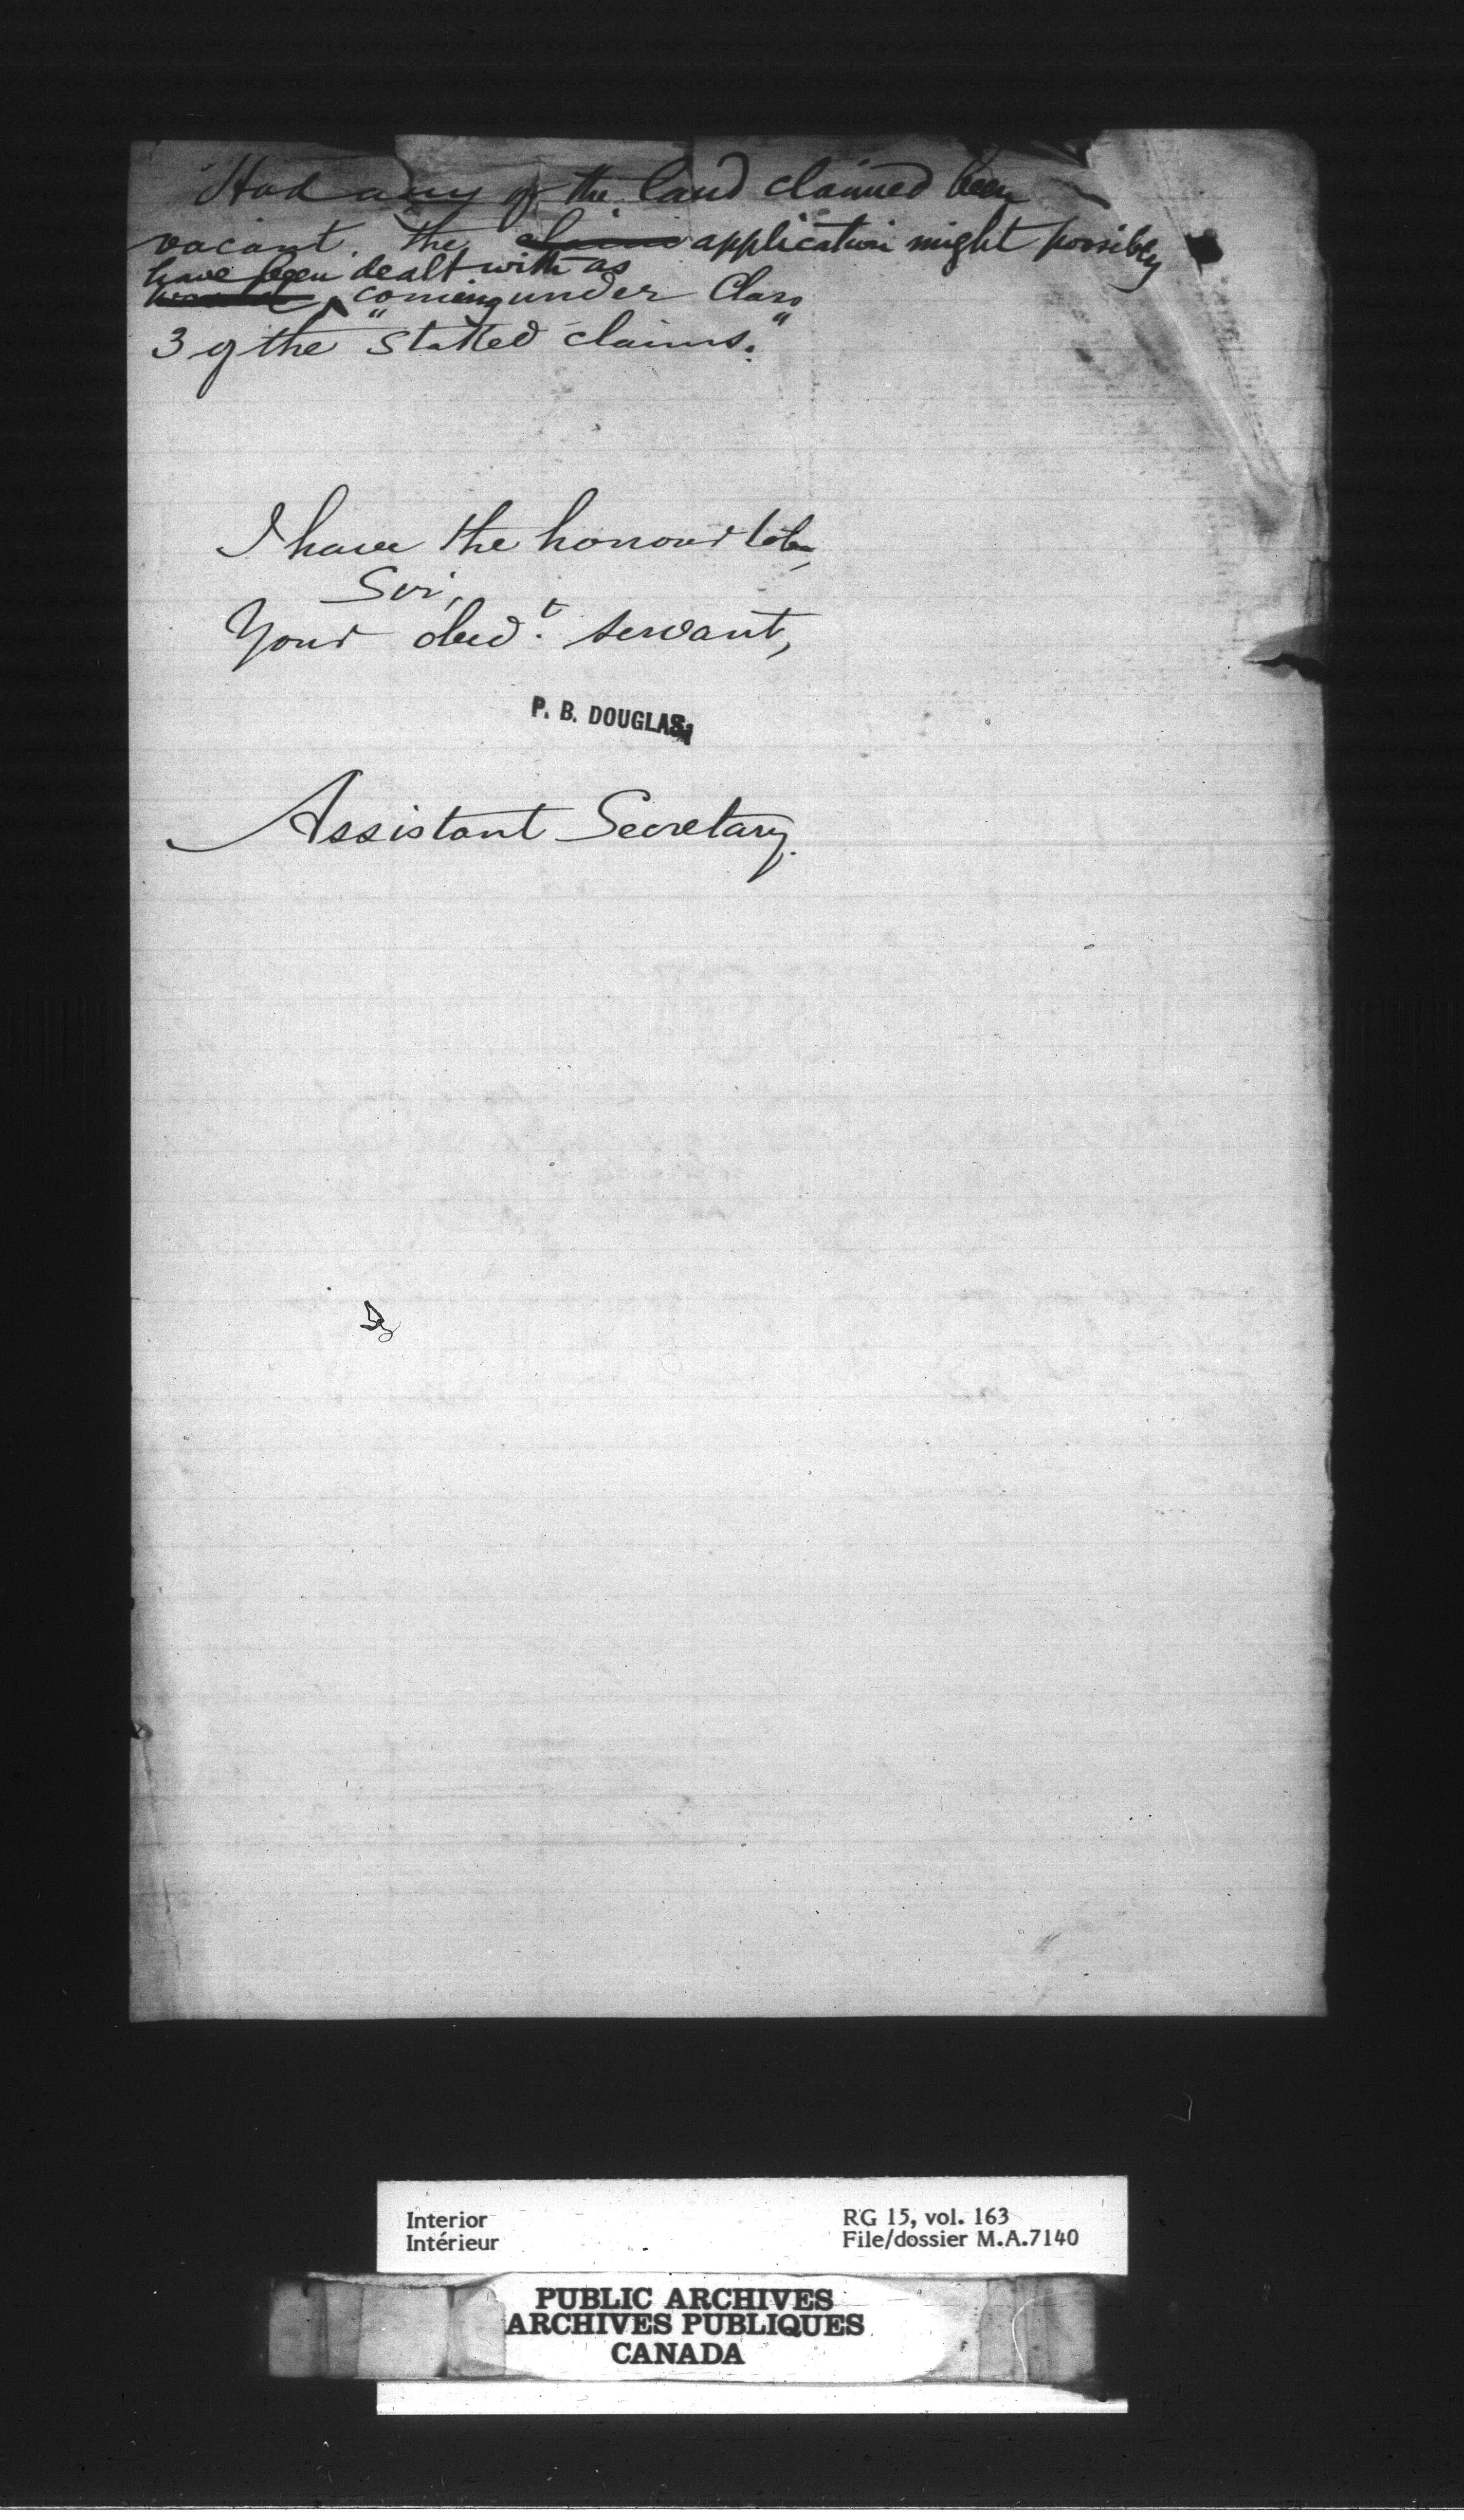 Had any of the land claimed been
vacant. the claim application might possibly
have been dealt with as
would coming under Class
3 of the "Staked claims."
I have the honour to be,
Sir,
Your obed.t servant,
P. B. DOUGLAS,
Assistant Secretary.
Interior
Intérieur
RG 15, vol. 163
File/dossier M.A.7140
PUBLIC ARCHIVES
ARCHIVES PUBLIQUES
CANADA